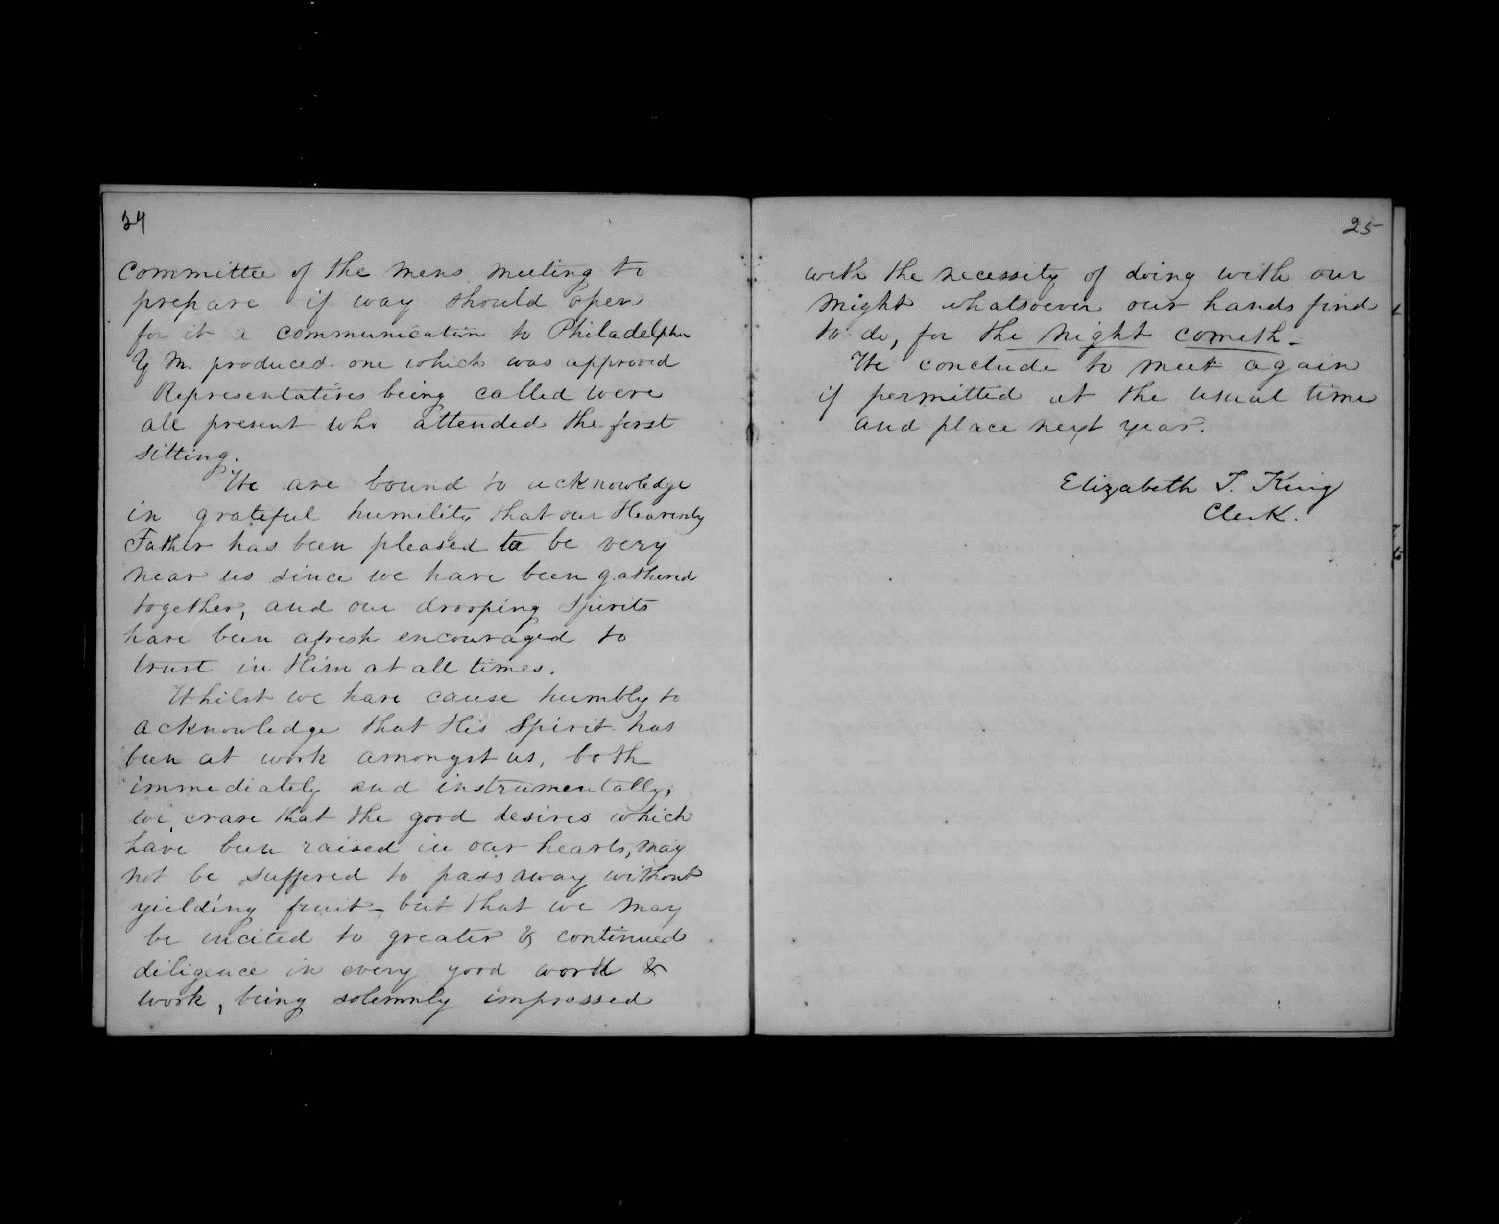 24
committee of the mens meeting to
prepare if way should open
for it a communication to Philadelphia
Y M. produced one which was approved
Representatives being called were
all present who attended the first
sitting.
We are bound to acknowledge
in grateful humility that our Heavenly
Father has been pleased to be very
near us since we have been gathered
together, and our drooping spirits
have been afresh encouraged to
trust in Him at all times.
Whilst we have cause humbly to
acknowledge that His Spirit has
been at work amongst us, both
immediately and instrumentally,
we crave that the good desires which
have been raised in our hearts, may
not be suffered to pass away without
yielding fruit - but that we may
be incited to greater & continued
diligence in every good word &
work, being solemnly impressed
25
with the necessity of doing with our
might whatsoever our hands find
to do, for the night cometh -
We conclude to meet again
if permitted at the usual time
and place next year.
Elizabeth T. King
Clerk.